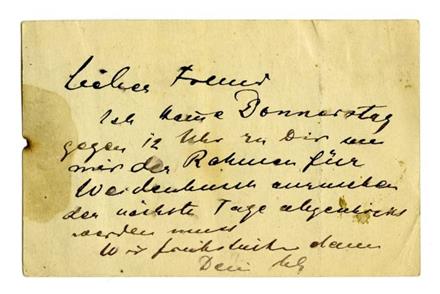 Lieber Freund
Ich komme Donnerstag
gegen 12 Uhr zu Dir um
mir den Rahmen für
Weidenbusch anzusehen
der nächste Tage abgeschickt
werden muss
Wir frühstücken dann
Dein